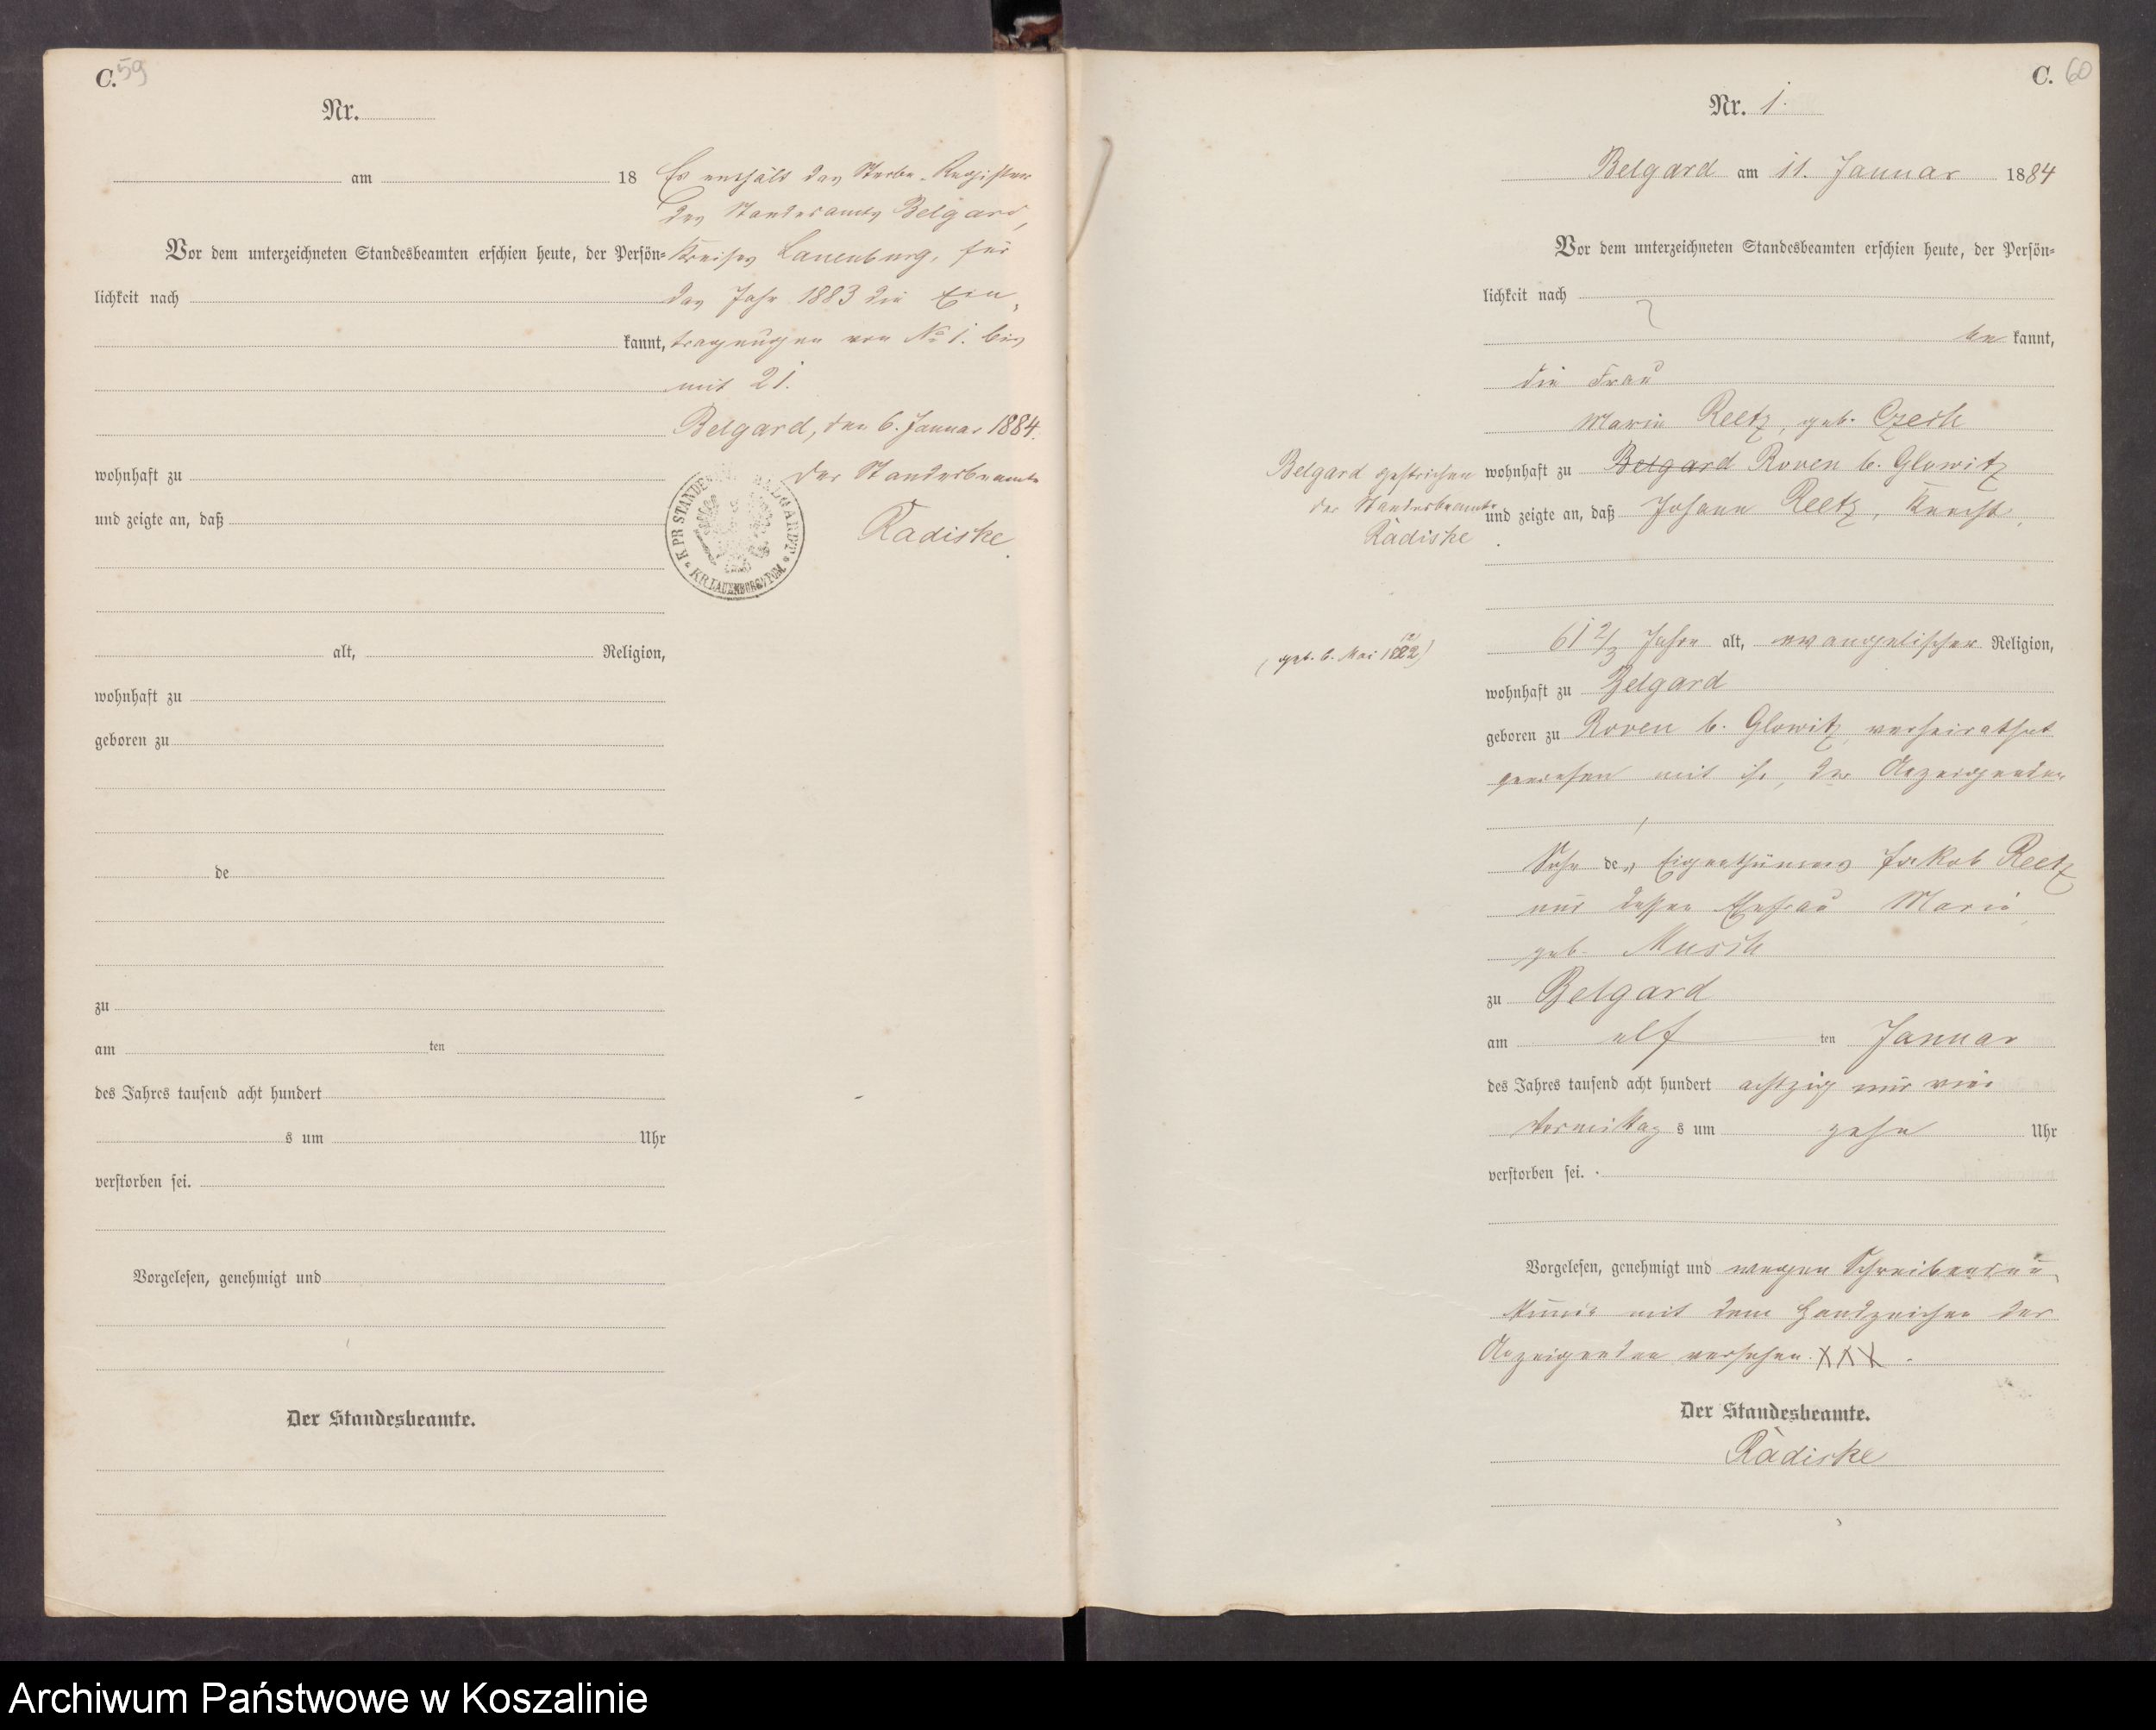 C. 59
Nr.
am 18
Vor dem unterzeichneten Standesbeamten erschien heute, der Persön-
lichkeit nach
kannt,
wohnhaft zu
und zeigte an, daß
alt, Religion,
wohnhaft zu
geboren zu
de
zu
am ten
des Jahres tausend acht hundert
s um Uhr
verstorben sei.
Vorgelesen, genehmigt und
Der Standesbeamte.
Es enthält das Sterbe-Register
des Standesamts Belgard,
Kreises Lauenburg, für
das Jahr 1883 die Ein-
tragungen von No 1. bis
mit 21.
Belgard, den 6. Januar 1884.
Der Standesbeamte
Radiske.
K PR STANDE BELGARD
KR LAUENBURG I POM
C. 60
Nr. 1.
Belgard am 11. Januar 1884
Vor dem unterzeichneten Standesbeamten erschien heute, der Persön-
lichkeit nach
be kannt,
die Frau
Marie Reetz, geb. Czech
wohnhaft zu Belgard Roven b. Glowitz
und zeigte an, daß Johann Reetz, Knecht,
Belgard gestrichen
der Standesbeamte
Radiske.
61 2/3 Jahre alt, evangelischer Religion,
(geb. 6. Mai 1822)
wohnhaft zu Belgard
geboren zu Roven b. Glowitz, verheirathet
gewesen mit ihr, der Anzeigenden
Sohn des Eigenthümers Jakob Reetz
und dessen Ehefrau Marie,
geb.
zu Belgard
am elf ten Januar
des Jahres tausend acht hundert achtzig und vier
Vormittag s um zehn Uhr
verstorben sei.
Vorgelesen, genehmigt und wegen Schreibensun-
kunde mit dem Handzeichen der
Anzeigenden versehen. XXX.
Der Standesbeamte.
Radiske
Archiwum Państwowe w Koszalinie